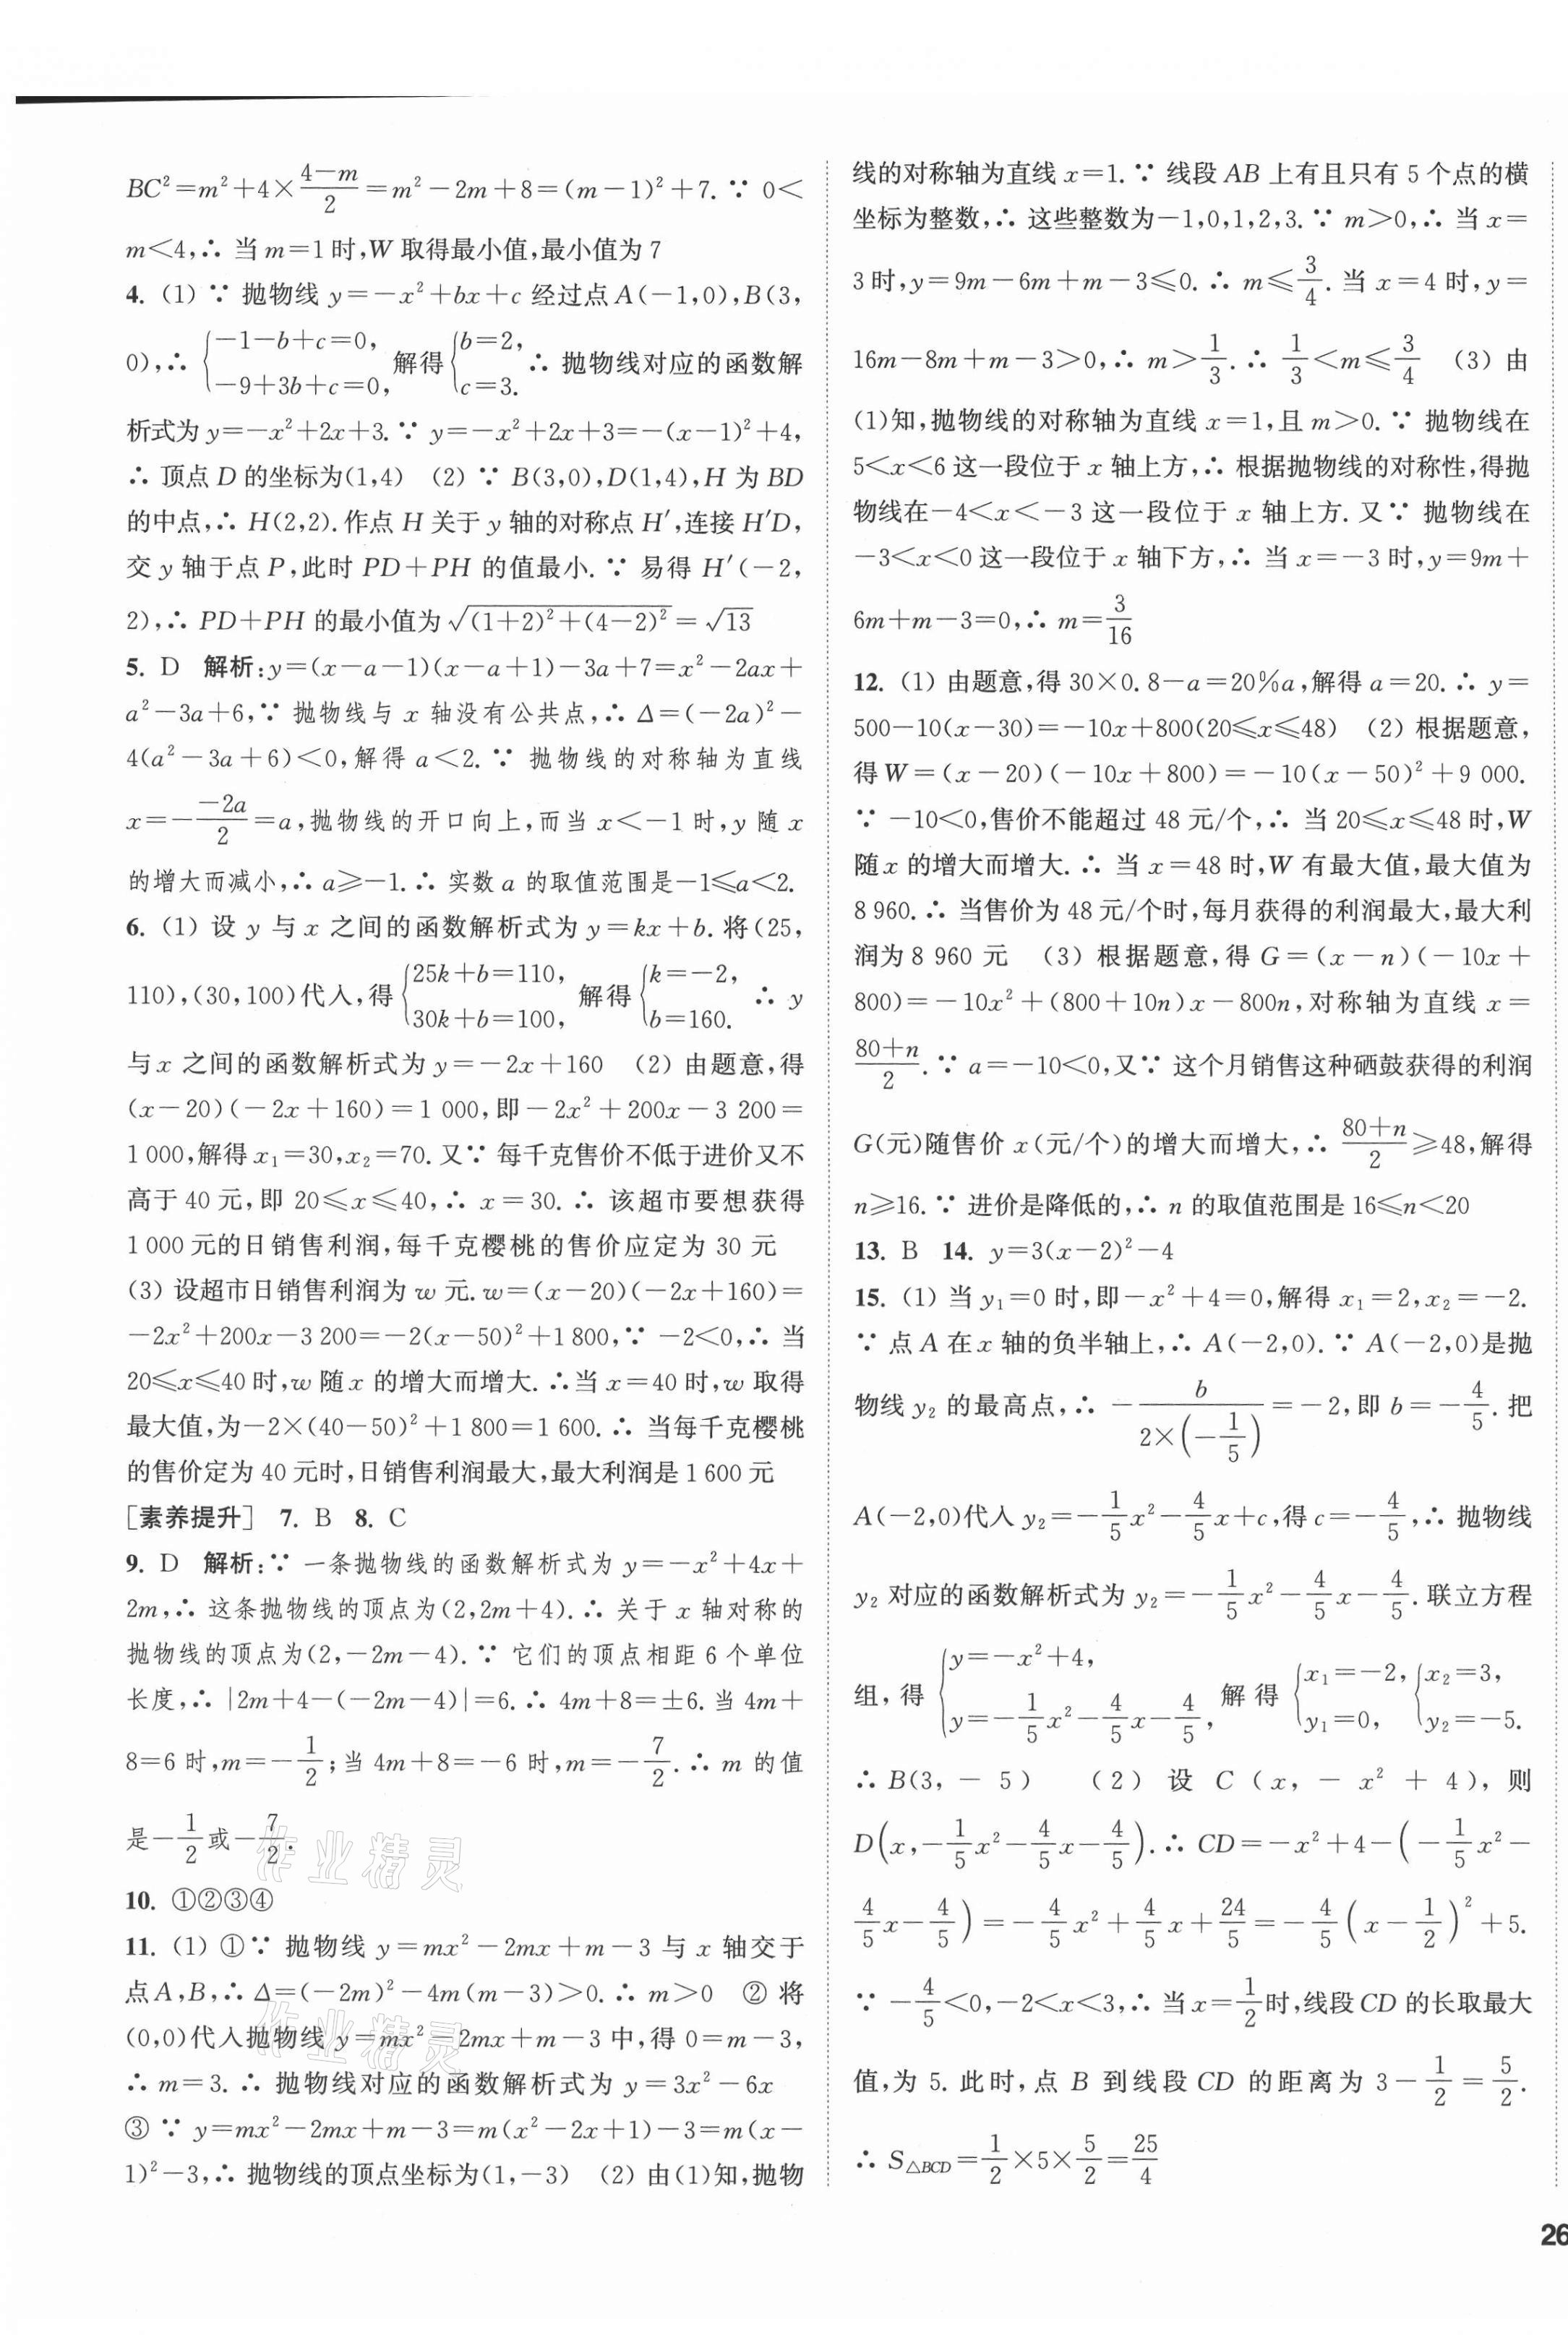 BC²=m²+4×\frac{4-m}{2}=m²-2m+8=(m-1)²+7.∵ 0<
m<4,∴ 当 m=1 时,W 取得最小值,最小值为 7
4. (1) ∵ 抛物线 y=-x²+bx+c 经过点 A(-1,0),B(3,
0),∴ {-1-b+c=0, -9+3b+c=0, 解得 {b=2, c=3. ∴ 抛物线对应的函数解
析式为 y=-x²+2x+3.∵ y=-x²+2x+3=-(x-1)²+4,
∴ 顶点 D 的坐标为(1,4) (2) ∵ B(3,0),D(1,4),H 为 BD
的中点,∴ H(2,2).作点 H 关于 y 轴的对称点 H′,连接 H′D,
交 y 轴于点 P,此时 PD+PH 的值最小.∵ 易得 H′(-2,
2),∴ PD+PH 的最小值为 √((1+2)²+(4-2)²)=√13
5. D 解析:y=(x-a-1)(x-a+1)-3a+7=x²-2ax+
a²-3a+6,∵ 抛物线与 x 轴没有公共点,∴ Δ=(-2a)²-
4(a²-3a+6)<0,解得 a<2.∵ 抛物线的对称轴为直线
x=-\frac{-2a}{2}=a,抛物线的开口向上,而当 x<-1 时,y 随 x
的增大而减小,∴ a≥-1.∴ 实数 a 的取值范围是-1≤a<2.
6. (1) 设 y 与 x 之间的函数解析式为 y=kx+b.将(25,
110),(30,100)代入,得 {25k+b=110, 30k+b=100, 解得 {k=-2, b=160. ∴ y
与 x 之间的函数解析式为 y=-2x+160 (2) 由题意,得
(x-20)(-2x+160)=1 000,即-2x²+200x-3 200=
1 000,解得 x₁=30,x₂=70.又∵ 每千克售价不低于进价又不
高于 40 元,即 20≤x≤40,∴ x=30.∴ 该超市要想获得
1 000 元的日销售利润,每千克樱桃的售价应定为 30 元
(3) 设超市日销售利润为 w 元.w=(x-20)(-2x+160)=
-2x²+200x-3 200=-2(x-50)²+1 800,∵ -2<0,∴ 当
20≤x≤40 时,w 随 x 的增大而增大.∴当 x=40 时,w 取得
最大值,为-2×(40-50)²+1 800=1 600.∴ 当每千克樱桃
的售价定为 40 元时,日销售利润最大,最大利润是 1 600 元
[素养提升] 7. B 8. C
9. D 解析:∵ 一条抛物线的函数解析式为 y=-x²+4x+
2m,∴ 这条抛物线的顶点为(2,2m+4).∴ 关于 x 轴对称的
抛物线的顶点为(2,-2m-4).∵ 它们的顶点相距 6 个单位
长度,∴ |2m+4-(-2m-4)|=6.∴ 4m+8=±6.当 4m+
8=6 时,m=-\frac{1}{2};当 4m+8=-6 时,m=-\frac{7}{2}.∴ m 的值
是-\frac{1}{2}或-\frac{7}{2}.
作业精灵
10. ①②③④
11. (1) ①∵ 抛物线 y=mx²-2mx+m-3 与 x 轴交于
点 A,B,∴ Δ=(-2m)²-4m(m-3)>0.∴ m>0 ② 将
(0,0)代入抛物线 y=mx²-2mx+m-3 中,得 0=m-3,
作业精灵
∴ m=3.∴ 抛物线对应的函数解析式为 y=3x²-6x
③ ∵ y=mx²-2mx+m-3=m(x²-2x+1)-3=m(x-
1)²-3,∴ 抛物线的顶点坐标为(1,-3) (2) 由(1)知,抛物
线的对称轴为直线 x=1.∵ 线段 AB 上有且只有 5 个点的横
坐标为整数,∴ 这些整数为-1,0,1,2,3.∵ m>0,∴ 当 x=
3 时,y=9m-6m+m-3≤0.∴ m≤\frac{3}{4}.当 x=4 时,y=
16m-8m+m-3>0,∴ m>\frac{1}{3}.∴ \frac{1}{3}<m≤\frac{3}{4} (3) 由
(1)知,抛物线的对称轴为直线 x=1,且 m>0.∵ 抛物线在
5<x<6 这一段位于 x 轴上方,∴ 根据抛物线的对称性,得抛
物线在-4<x<-3 这一段位于 x 轴上方.又∵ 抛物线在
-3<x<0 这一段位于 x 轴下方,∴ 当 x=-3 时,y=9m+
6m+m-3=0,∴ m=\frac{3}{16}
12. (1) 由题意,得 30×0.8-a=20%a,解得 a=20.∴ y=
500-10(x-30)=-10x+800(20≤x≤48) (2) 根据题意,
得 W=(x-20)(-10x+800)=-10(x-50)²+9 000.
∵ -10<0,售价不能超过 48 元/个,∴ 当 20≤x≤48 时,W
随 x 的增大而增大.∴ 当 x=48 时,W 有最大值,最大值为
8 960.∴ 当售价为 48 元/个时,每月获得的利润最大,最大利
润为 8 960 元 (3) 根据题意,得 G=(x-n)(-10x+
800)=-10x²+(800+10n)x-800n,对称轴为直线 x=
\frac{80+n}{2}.∵ a=-10<0,又∵ 这个月销售这种硒鼓获得的利润
G(元)随售价 x(元/个)的增大而增大,∴ \frac{80+n}{2}≥48,解得
n≥16.∵ 进价是降低的,∴ n 的取值范围是 16≤n<20
13. B 14. y=3(x-2)²-4
15. (1) 当 y₁=0 时,即-x²+4=0,解得 x₁=2,x₂=-2.
∵ 点 A 在 x 轴的负半轴上,∴ A(-2,0).∵ A(-2,0)是抛
物线 y₂ 的最高点,∴ -\frac{b}{2×(-\frac{1}{5})}=-2,即 b=-\frac{4}{5}.把
A(-2,0)代入 y₂=-\frac{1}{5}x²-\frac{4}{5}x+c,得 c=-\frac{4}{5},∴ 抛物线
y₂ 对应的函数解析式为 y₂=-\frac{1}{5}x²-\frac{4}{5}x-\frac{4}{5}.联立方程
组,得 {y=-x²+4, y=-\frac{1}{5}x²-\frac{4}{5}x-\frac{4}{5}, 解得 {x₁=-2, y₁=0, {x₂=3, y₂=-5.
∴ B(3,-5) (2) 设 C(x,-x²+4),则
D(x,-\frac{1}{5}x²-\frac{4}{5}x-\frac{4}{5}).∴ CD=-x²+4-(-\frac{1}{5}x²-
\frac{4}{5}x-\frac{4}{5})=-\frac{4}{5}x²+\frac{4}{5}x+\frac{24}{5}=-\frac{4}{5}(x-\frac{1}{2})²+5.
∵ -\frac{4}{5}<0,-2<x<3,∴ 当 x=\frac{1}{2}时,线段 CD 的长取最大
值,为 5.此时,点 B 到线段 CD 的距离为 3-\frac{1}{2}=\frac{5}{2}.
∴ S△BCD=\frac{1}{2}×5×\frac{5}{2}=\frac{25}{4}
26